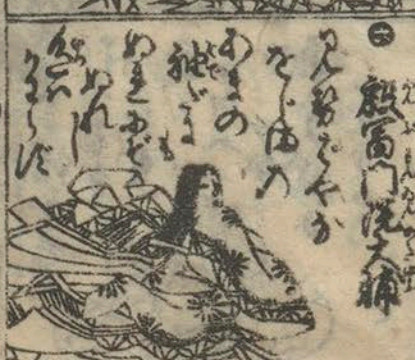 殷富門院大輔
見せばやな
をじまの
あまの
袖だにも
ぬれにぞ
ぬれし
色は
かはらず